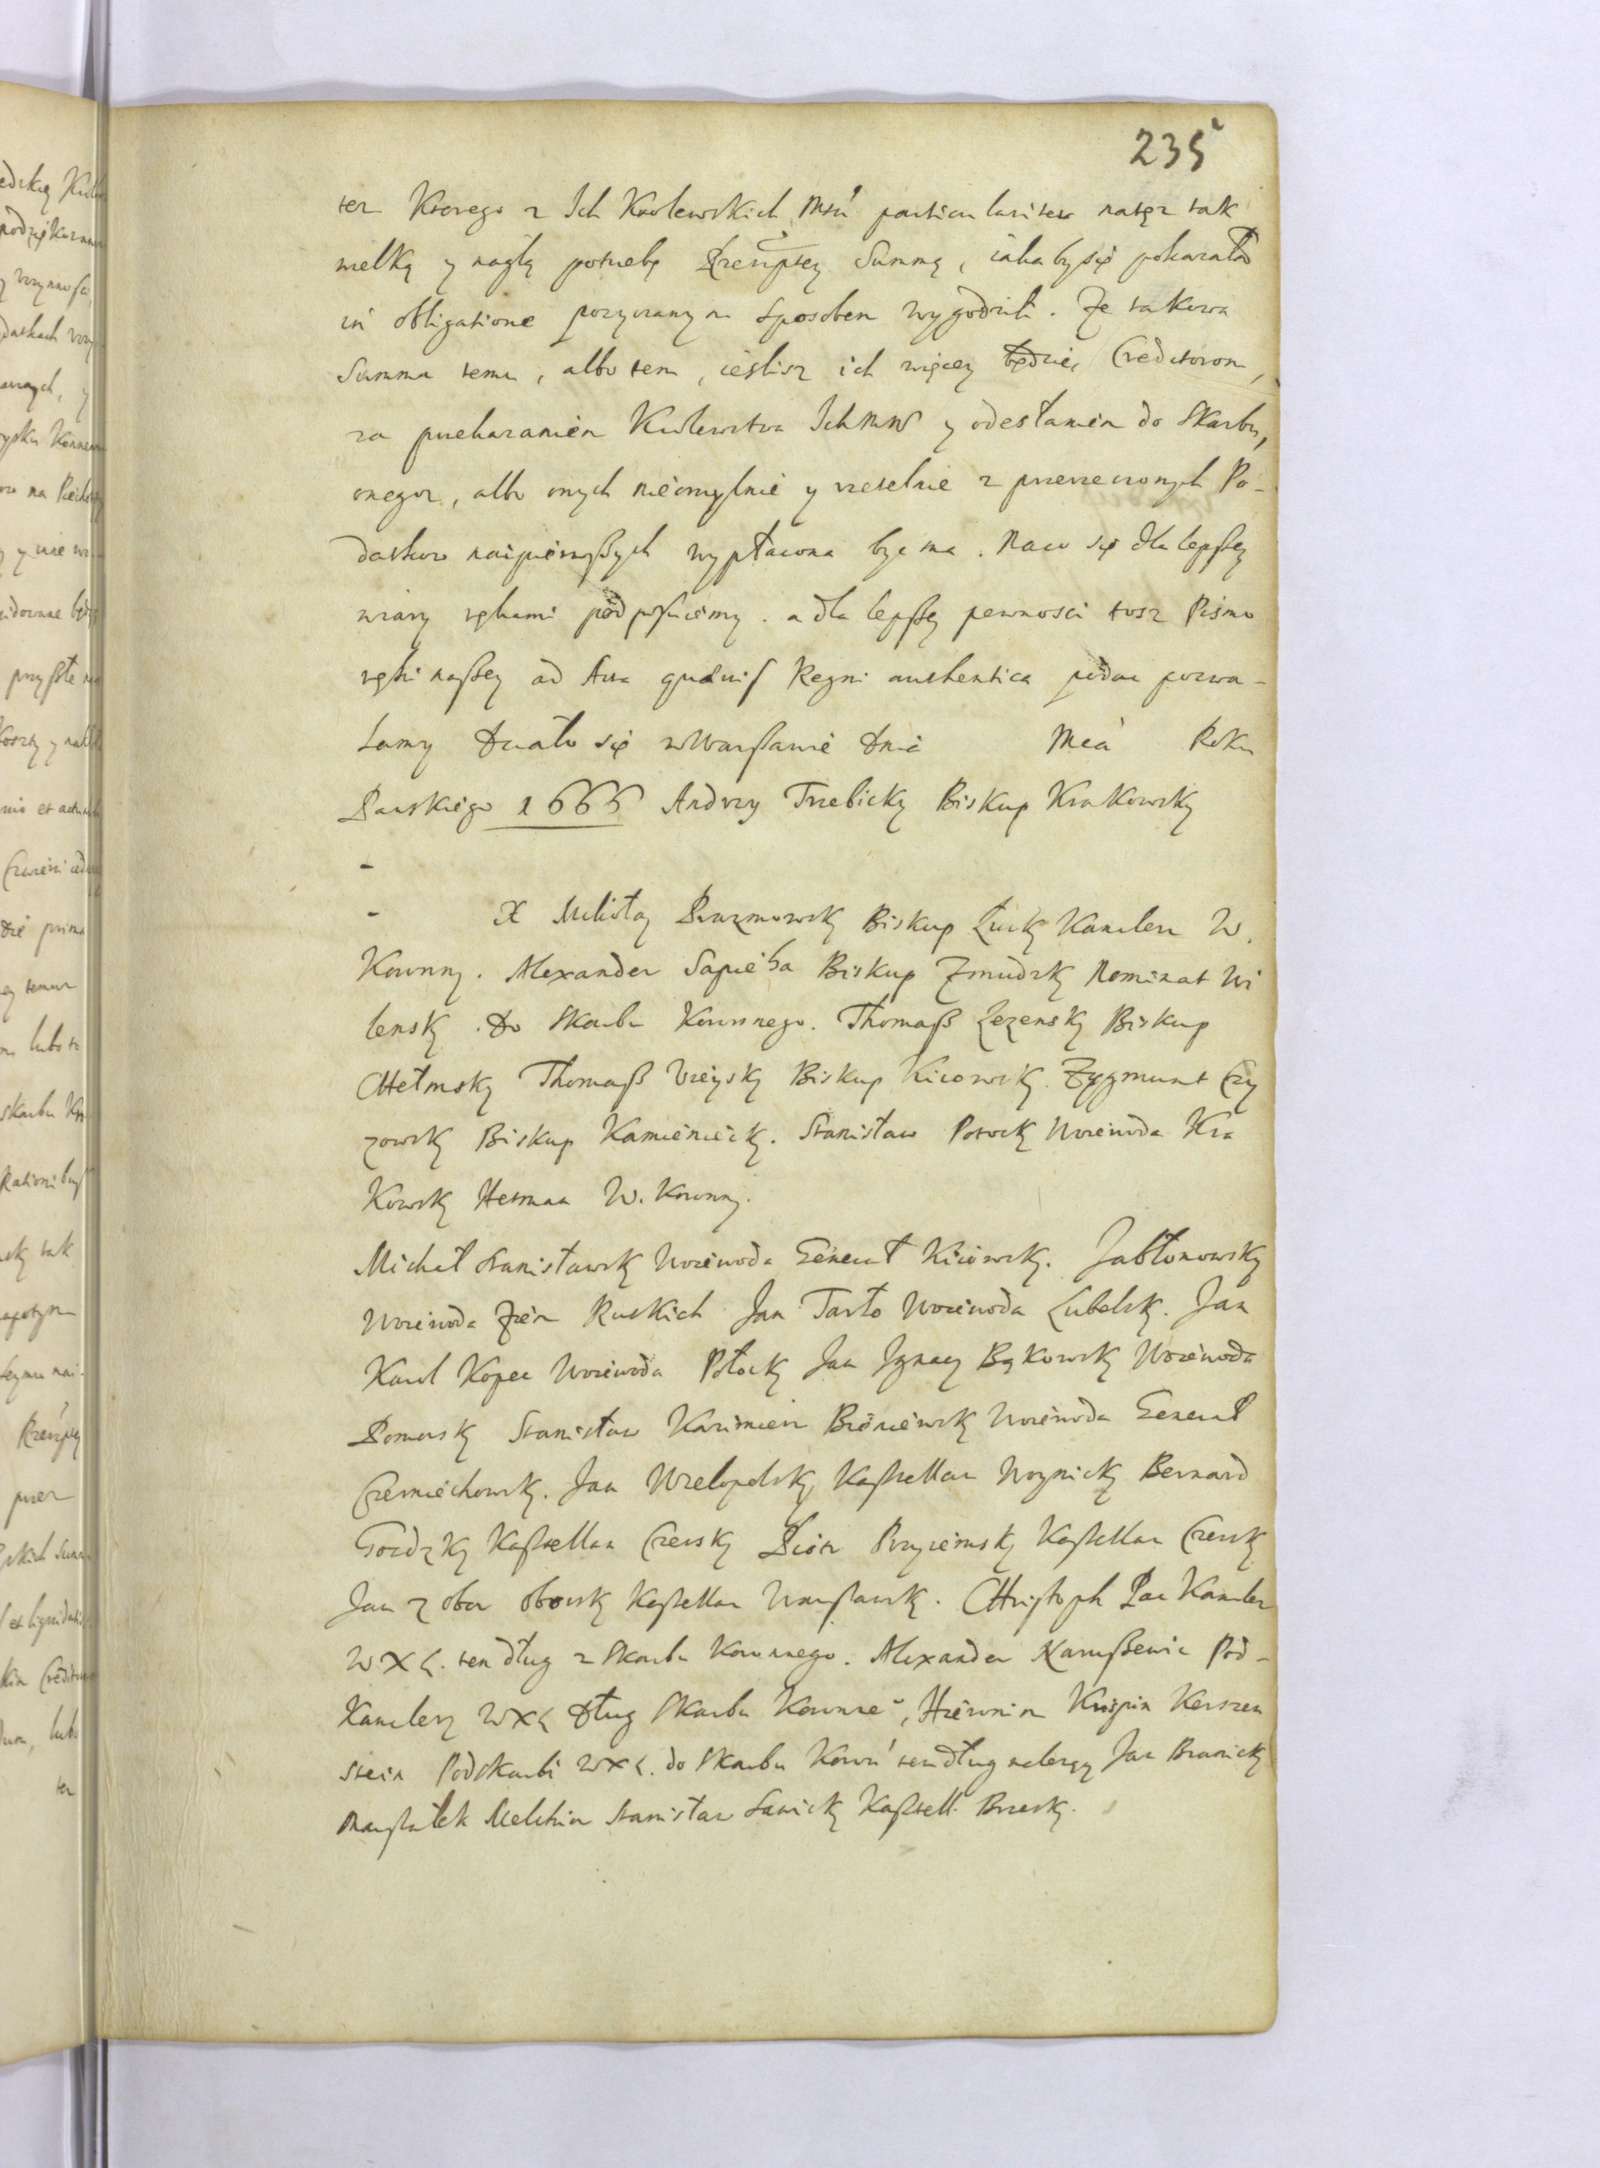 235
tez Ktorego z Ich Krolewskich Mśći particulariter natęz tak
wielką y nagłą potrzebę Rzeńptey Summą, iaka by się pokazała
in obligatione pozyczanym sposobem wygodzili. Ze takowa
Summa temu, albo tem, ieslisz ich więcey będzie, Creditorom,
za przekazaniem Krolewstwa Ich MM y odesłaniem do Skarbu,
onegoz, albo onych nieomylnie y rzetelnie z przerzeczonych Po-
datkow naipierwßych wypłacona byc ma. Na co się dla lepßey
wiary rękami podpisuiemy. a dla lepßey pewnosci tosz Pismo
ręki naßey ad Acta quaevis Regni authentica podac pozwa-
lamy Działo się w Warßawie dnia Mca Roku
Panskiego 1666 Andrzy Trzebicky Biskup Krakowsky
-
- X Mikołay Prazmowsky Biskup Łucky Kanclerz W.
Koronny. Alexander Sapieha Biskup Zmudzky Nominat Wi
lensky. do Skarbu Koronnego. Thomaß Lezensky Biskup
Chełmsky Thomaß Vieysky Biskup Kiiowsky. Zygmunt Czy
zowsky Biskup Kamieniecky. Stanisław Potocky Woiewoda Kra
kowsky Hetman W. Koronny.
Michał Stanisławsky Woiewoda Generał Kiiowsky. Jabłonowsky
Woiewoda Ziem Ruskich Jan Tarło Woiewoda Lubelsky. Jan
Karol Kopec Woiewoda Połocky Jan Ignacy Bąkowsky Woiewoda
Pomorsky Stanisław Kazimierz Bieniewsky Woiewoda Generał
Czerniechowsky. Jan Wielopolsky Kasztellan Woynicky Bernard
Gordzky Kasztellan Czersky Piotr Przyiemsky Kasztellan Czersky
Jan z Obor Oborsky Kasztellan Warßawsky. Christoph Pac Kanclerz
W X L. ten dług z Skarbu Koronnego. Alexander Narußewic Pod-
Kanclerz W X L dług Skarbu Koronne, Hieronim Kryspin Kerszen
stein Podskarbi W X L. do Skarbu Koron ten dług nalezy Jan Branicky
Marßałek Melchior Stanisław Sawicky Kasztell. Brzesky.